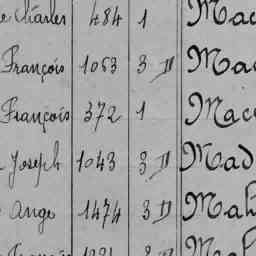 e Charles 484 1 Mac
François 1063 3 D Mac
François 372 1 Mac
Joseph 1043 3 D Mad
Ange 1474 3 D Mah